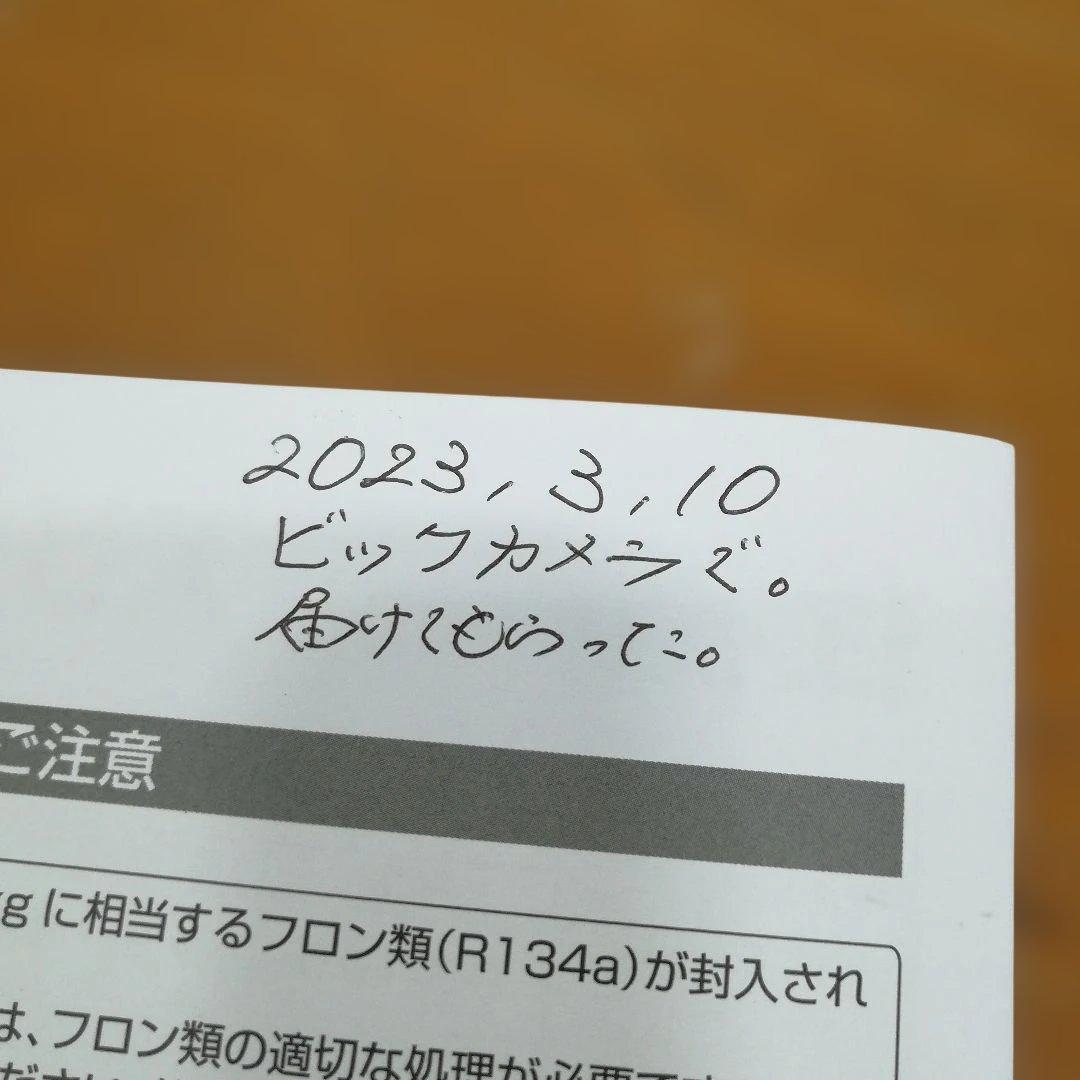 2023, 3, 10
ビックカメラで。
届けてもらった。
ご注意
kgに相当するフロン類(R134a)が封入され
は、フロン類の適切な処理が必要です
ださい